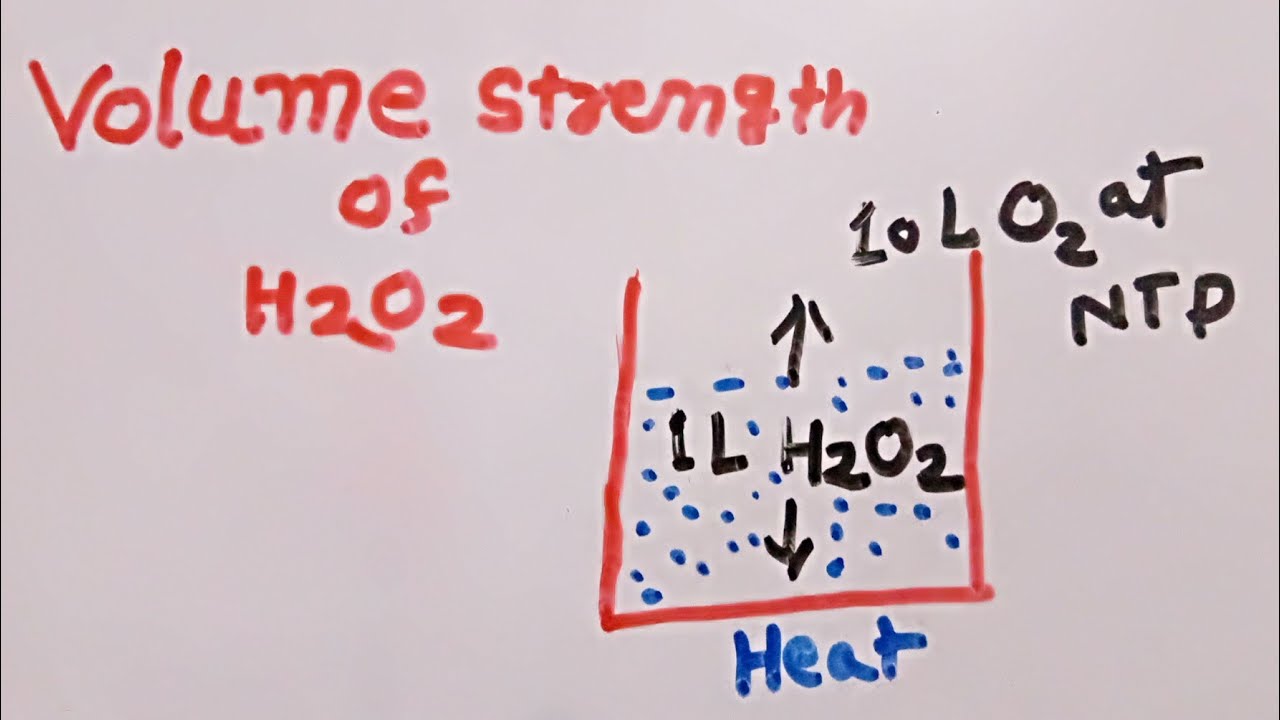 Volume strength
of
H2O2
10 L O2 at
NTP
1L H2O2
Heat